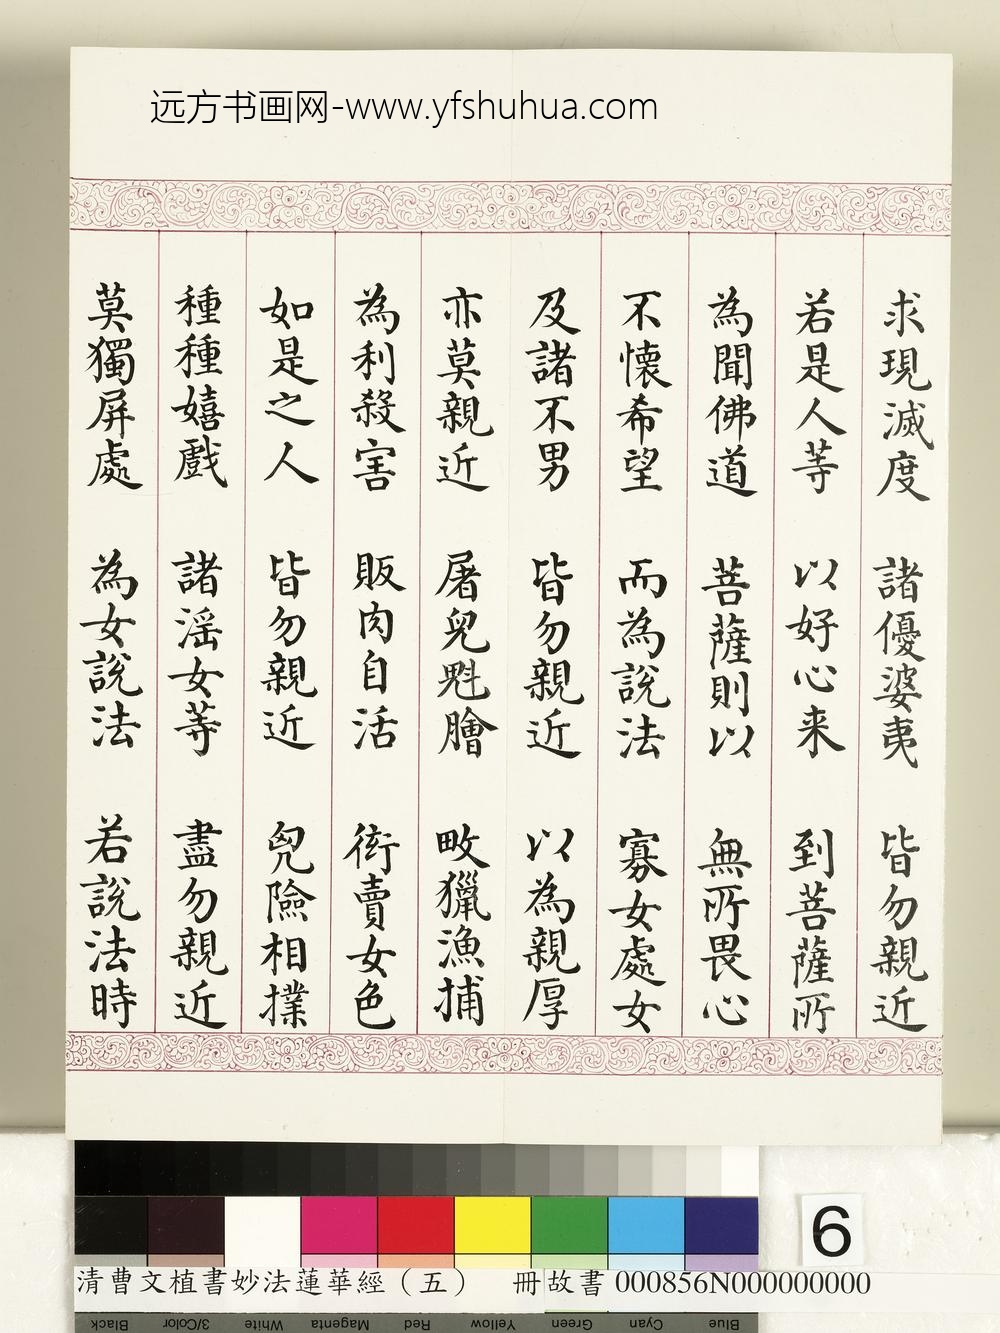 远方书画网-www.yfshuhua.com
求現滅度 諸優婆夷 皆勿親近
若是人等 以好心来 到菩薩所
為聞佛道 菩薩則以 無所畏心
不懷希望 而為説法 寡女處女
及諸不男 皆勿親近 以為親厚
亦莫親近 屠兒魁膾 畋獵漁捕
為利殺害 販肉自活 衒賣女色
如是之人 皆勿親近 兇險相撲
種種嬉戲 諸淫女等 盡勿親近
莫獨屏處 為女説法 若説法時
6
清曹文植書妙法蓮華經（五） 冊故書 000856N000000000
Black 3/Color White Magenta Red Yellow Green Cyan Blue